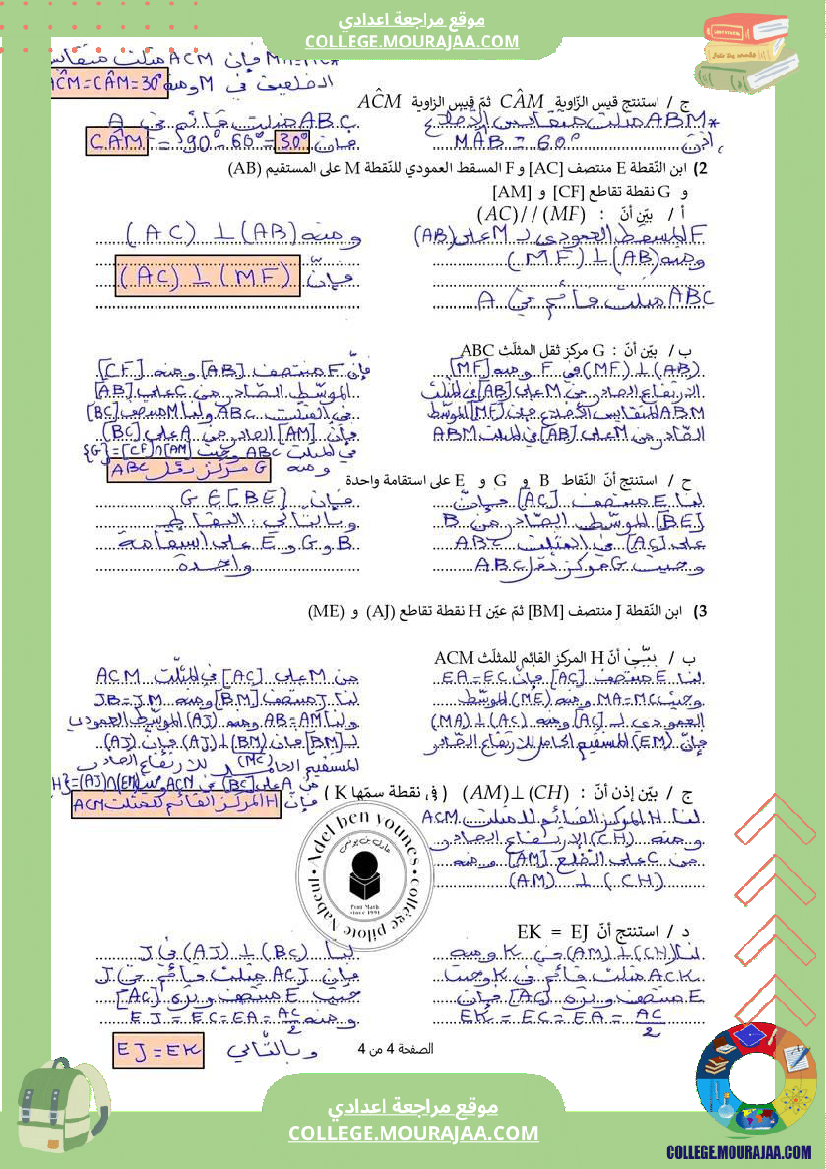 موقع مراجعة اعدادي
COLLEGE.MOURAJAA.COM
MA=MC* فإن ACM مثلث متقايس
الضلعين في M ومنه
AĈM=CÂM=30°
ج / استنتج قيس الزّاوية CÂM ثمّ قيس الزاوية AĈM
*ABM مثلث متقايس الأضلاع
إذن MÂB = 60°
ABC مثلث قائم في A
فإن CÂM = 90°-60°= 30°
2) ابن النّقطة E منتصف [AC] و F المسقط العمودي للنّقطة M على المستقيم (AB)
و G نقطة تقاطع [CF] و [AM]
أ / بيّن أنّ : (MF) // (AC)
F المسقط العمودي لـ M على (AB)
ومنه (AB) ⊥ (MF)
ABC مثلث قائم في A
ومنه (AB) ⊥ (AC)
فإنّ (MF) ⊥ (AC)
ب / بيّن أنّ : G مركز ثقل المثلّث ABC
(AB) ⊥ (MF) في F ومنه [MF]
الارتفاع الصادر من M على [AB] في المثلث
ABM المتقايس الأضلاع فإن [MF] الموسّط
الصّادر من M على [AB] في المثلث ABM
فإنّ F منتصف [AB] ومنه [CF]
الموسّط الصّادر من C على [AB]
في المثلث ABC ولنا M منتصف [BC]
فإن [AM] الصادر من A على [BC]
في المثلث ABC وحيث [AM]∩[CF]={G}
ومنه G مركز ثقل ABC
ح / استنتج أنّ النّقاط B و G و E على استقامة واحدة
لنا E منتصف [AC] فإنّ
[BE] الموسّط الصّادر من B
على [AC] في المثلث ABC
وحيث G مركز ثقل ABC
فإن G ∈ [BE]
وبالتّالي النقاط
B و G و E على استقامة
واحدة
3) ابن النّقطة J منتصف [BM] ثمّ عيّن H نقطة تقاطع (AJ) و (ME)
ب / بيّن أنّ H المركز القائم للمثلّث ACM
لنا E منتصف [AC] فإنّ EA=EC
وحيث MA=MC ومنه (ME) الموسّط
العمودي لـ [AC] ومنه (AC)⊥(MA)
فإنّ (EM) المستقيم الحامل للارتفاع الصّادر
من M على [AC] في المثلّث ACM
لنا J منتصف [BM] ومنه JB=JM
ولنا AB=AM ومنه (AJ) الموسّط العمودي
لـ [BM] فإن (BM)⊥(AJ) فإنّ (AJ)
المستقيم الحامل للارتفاع الصادر
من A على [BC] في ACM وحيث (EM)∩(AJ)={H}
فإنّ H المركز القائم للمثلث ACM
ج / بيّن إذن أنّ : (CH)⊥(AM) ( في نقطة سمّها K )
لنا H المركز القائم للمثلث ACM
ومنه (CH) الارتفاع الصادر
من C على الضّلع [AM] ومنه
(CH) ⊥ (AM)
Adel ben Younes
عادل بن يونس
Four Math
since 1991
collège pilote Nabeul
د / استنتج أنّ EK = EJ
لنا (CH)⊥(AM) في K ومنه
ACK مثلث قائم في K وحيث
E منتصف وتره [AC] فإن
EK = EC = EA = AC/2
لنا (BC) ⊥ (AJ) في J
فإن ACJ مثلث قائم في J
حيث E منتصف وتره [AC]
ومنه EJ = EC = EA = AC/2
وبالتّالي EJ = EK
الصفحة 4 من 4
موقع مراجعة اعدادي
COLLEGE.MOURAJAA.COM
COLLEGE.MOURAJAA.COM